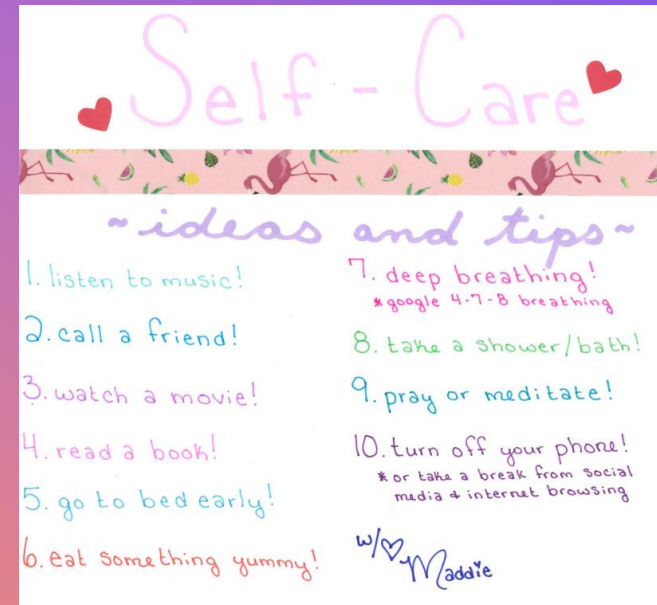 Self-Care
~ideas and tips~
1. listen to music!
2. call a friend!
3. watch a movie!
4. read a book!
5. go to bed early!
6. eat something yummy!
7. deep breathing!
*google 4-7-8 breathing
8. take a shower/bath!
9. pray or meditate!
10. turn off your phone!
*or take a break from social
media & internet browsing
w/♡ Maddie